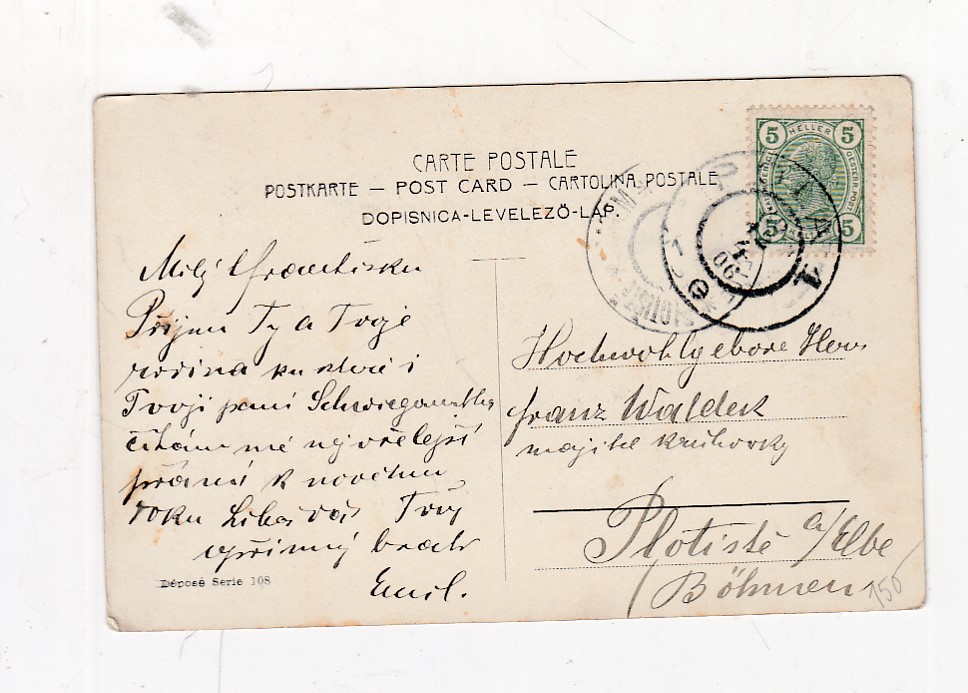 CARTE POSTALE
POSTKARTE — POST CARD — CARTOLINA POSTALE
DOPISNICA-LEVELEZÖ-LAP.
5 HELLER 5
5 5
Milý Františku
Přijmi Ty a Tvoje
rodina ku které i
Tvoji paní Schwiegermutter
čítám mé nejvřelejší
přání k novému
roku Líbá vás Tvůj
upřímný bratr
Emil.
Déposé Serie 108
Hochwohlgeboren Herrn
Franz Waldek
majitel knihovny
Plotiště a/Elbe
Böhmen
150